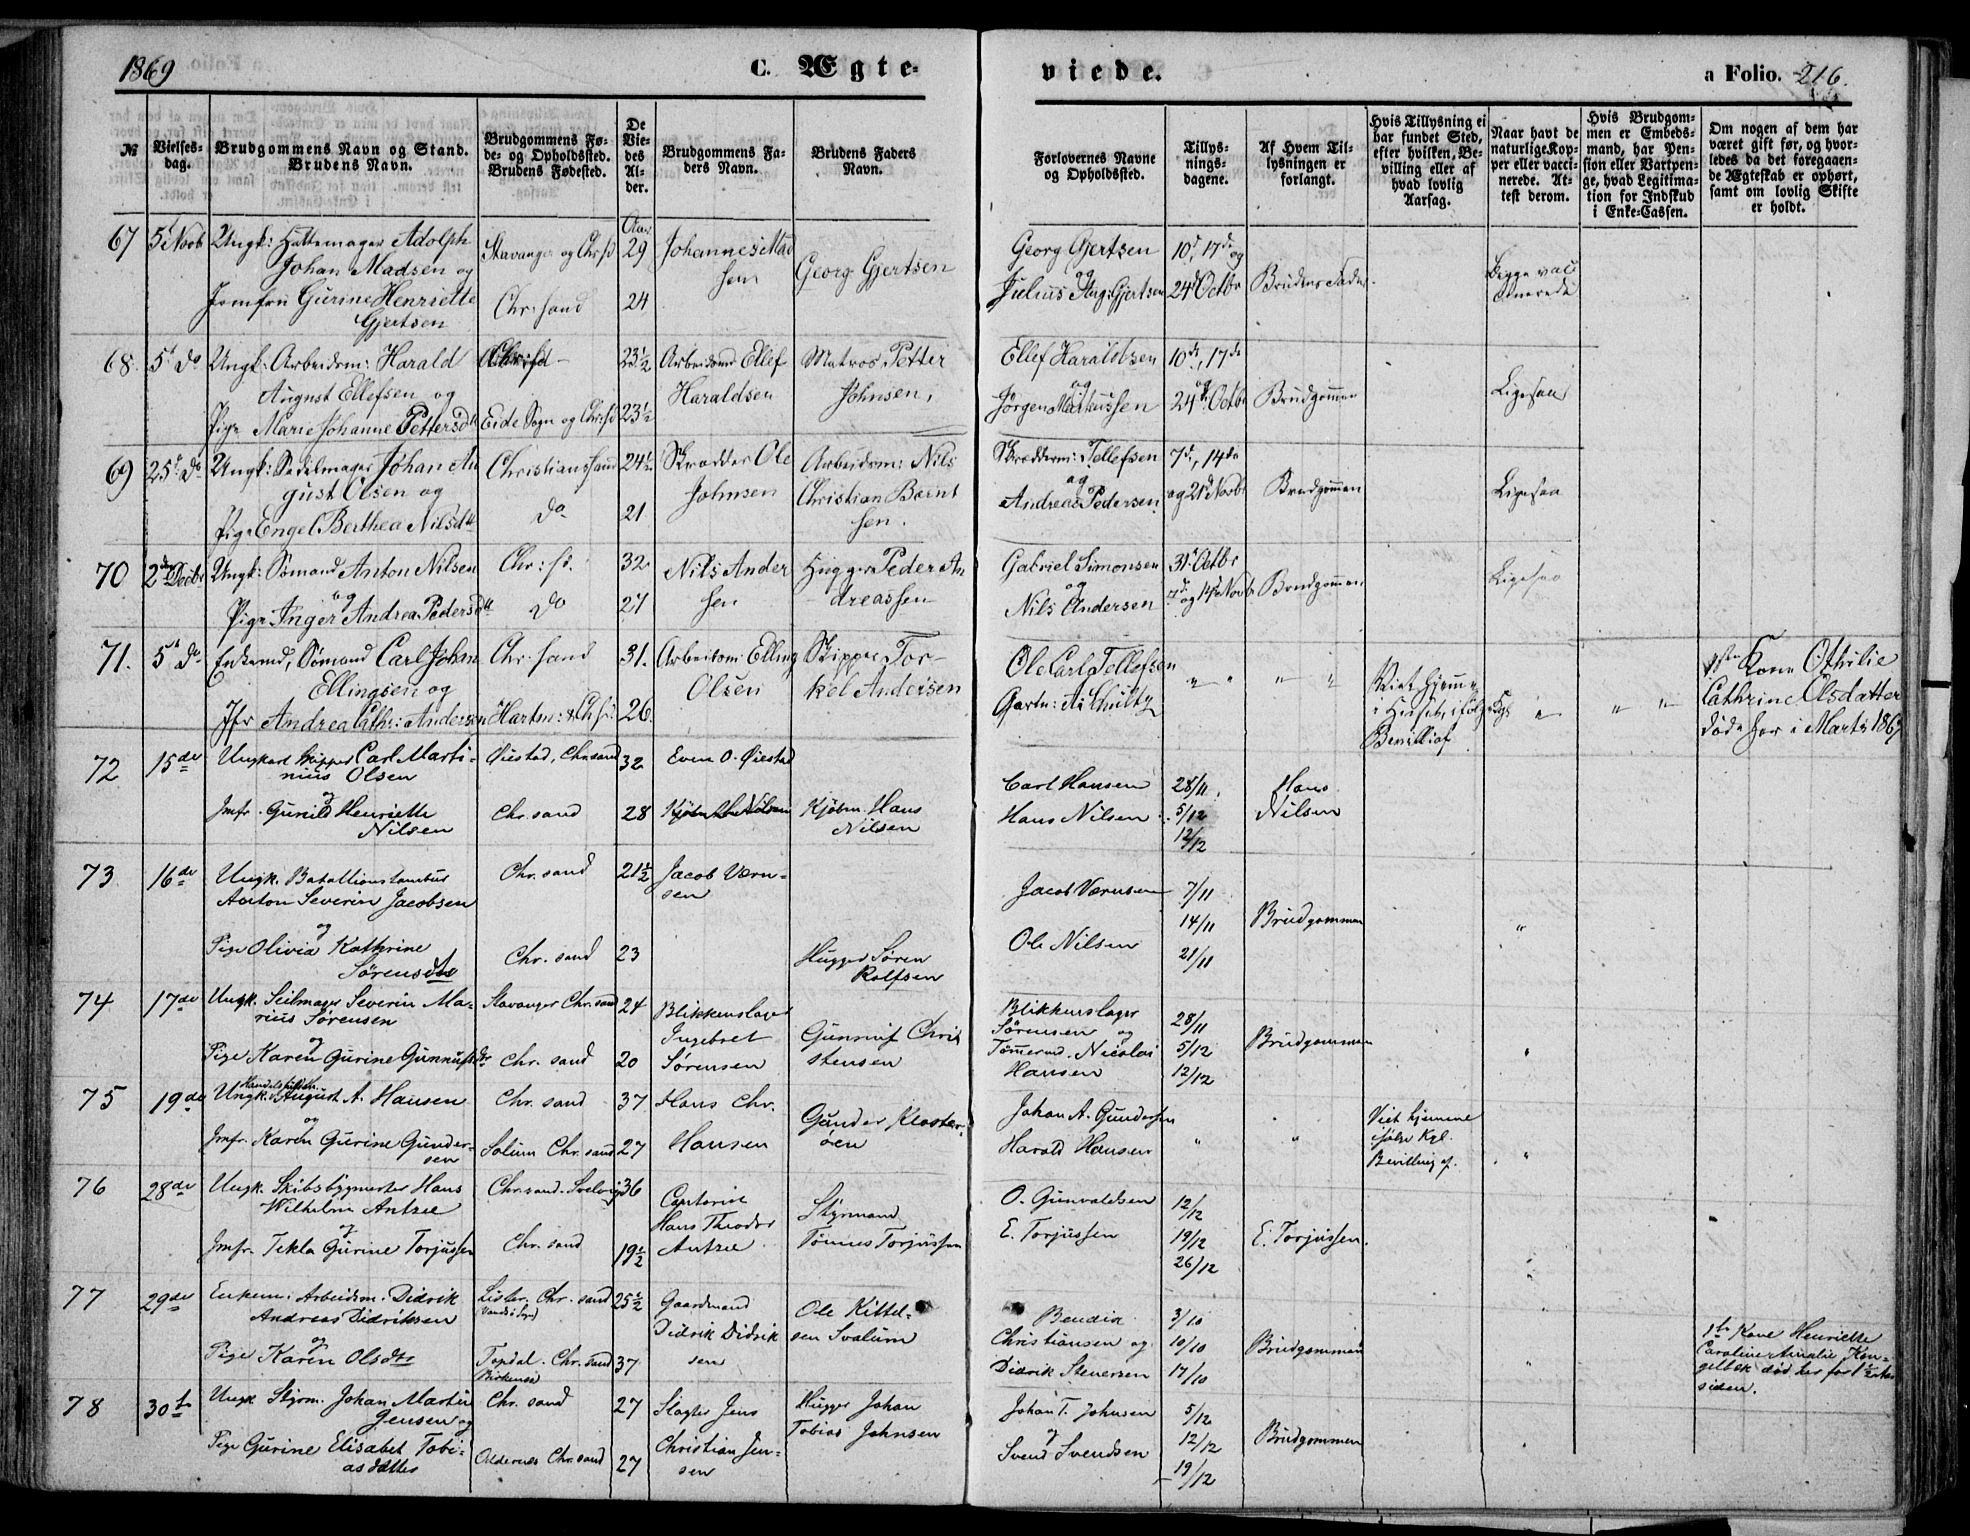 1869
C. Ægte-
viede.
a Folio. 216.
№
Vielses-
dag.
Brudgommens Navn og Stand.
Brudens Navn.
Brudgommens Fø-
de- og Opholdssted.
Brudens Fødested.
De
Vie-
des
Al-
der.
Brudgommens Fa-
ders Navn.
Brudens Faders
Navn.
Forlovernes Navne
og Opholdssted.
Tillys-
nings-
dagene.
Af Hvem Til-
lysningen er
forlangt.
Hvis Tillysning ei
har fundet Sted,
efter hvilken, Be-
villing eller af
hvad lovlig
Aarsag.
Naar havt de
naturlige Kop-
per eller vacci-
nerede. At-
test derom.
Hvis Brudgom-
men er Embeds-
mand, har Pen-
sion eller Vartpen-
ge, hvad Legitima-
tion for Indskud
i Enke-Cassen.
Om nogen af dem har
været gift før, og hvor-
ledes da det foregaaen-
de Ægteskab er ophørt,
samt om lovlig Skifte
er holdt.
67 5t Novb Ungk: Hattemager Adolph
Johan Madsen og
Jomfru Gurine Henriette
Gjertsen
Stavanger og Chrsd
Chr: sand
Aar
29
24
Johannes Mad
sen
Georg Gjertsen
Georg Gjertsen
Julius Aug: Gjertsen
10d, 17de og
24d Octbr
Brudens Fader
Begge vac
cinerede
68. 5t do Ungk: Arbeidsm: Harald
August Ellefsen og
Pige Marie Johanne Pettersdt
Chr: sd
Eide Sogn og Chrsd
23½
23½
Arbeidsmd Ellef
Haraldsen
Matros Petter
Johnsen,
Ellef Haraldsen
og
Jörgen Markussen
10de, 17de
og
24de Octbr
Brudgommen
Ligesaa
69 25t do Ungk: Seilmager Johan Au
gust Olsen og
Pige Engel Berthea Nilsdtt
Christianssand
do
24½
21
Skrædder Ole
Johnsen
Arbeidsm: Nils
Christian Bernt
sen.
Skrædderm: Tellefsen
og
Andreas Pedersen
7de, 14de
og 21d Novbr
Brudgommen
Ligesaa
70 2d Decbr Ungk: Sömand Anton Nilsen
og
Pige Inger Andrea Pedersdtt
Chr: sd.
do
32
27
Nils Ander
sen
Hugger Peder An
dreassen
Gabriel Simonsen
og
Nils Andersen
31t Octbr
7de og 14de Novbr
Brudgommen
Ligesaa
71. 5t do Enkemd, Sömand Carl Johan
Ellingsen og
Jfr Andrea Cath: Andersen
Chr: sand
Hartm: & Chrsd:
31.
26.
Arbeidsm: Elling
Olsen
Skipper Tor-
kel Andersen
Ole Carl Tellefsen
Gartn: A. Schultz
" "
" "
Viet hjemme
i Huset ifølge Kgl
Bevill: af
"
" "
1ste Kone Othilie
Cathrine Olsdatter
døde her i Marts 1867
72 15de Ungkarl Skipper Carl Marti-
nius Olsen
og
Jmfr. Gunild Henriette
Nilsen
Øiestad, Chr.sand
Chr. sand
32
28
Even O. Øiestad
Kjøbm. Hans
Nilsen
Carl Hansen
Hans Nilsen
28/11,
5/12
12/12
Hans
Nilsen
73. 16de Ungk. Bataillionstambur
Anton Severin Jacobsen
og
Pige Olivia Kathrine
Sørensdtr
Chr. sand
Chr. sand
21½
23
Jacob Værn-
sen
Hugger Søren
Rolfsen
Jacob Værnsen
Ole Nilsen
7/11
14/11
21/11
Brudgommen
"
74 17de Ungk. Seilmager Severin Ma-
rius Sørensen
og
Pige Karen Gurine Gunnufsdtr
Stavanger Chr. sand
Chr. sand
24
20
Blikkenslager
Ingebret
Sørensen
Gunnuf Chri
stensen
Blikkenslager
Sørensen og
Tømermd. Nicolai
Hansen
28/11
5/12
12/12
Brudgommen
"
75 19de Ungk. August A. Hansen
og
Jmfr. Karen Gurine Gunder-
sen
Chr. sand
Solum Chr. sand
37
27
Hans Chr.
Hansen
Gunder Kloster-
øen
Johan A. Gundersen
Harald Hansen
"
"
Viet hjemme
ifølge Kgl.
Bevilling af.
"
76 28de Ungk. Skibsbygmester Hans
Wilhelm Antzee
og
Jmfr. Tekla Gurine Torjussen
Chr.sand. Svelvig
Chr. sand
36
19½
Captain
Hans Theodor
Antzee
Styrmand
Tønnes Torjussen
O. Gunvaldsen
E. Torjussen
12/12
19/12
26/12
E. Torjussen.
"
77 29de Enkem. Arbeidsm. Didrik
Andreas Didriksen
og
Pige Karen Olsdtr
Lister. Chr. sand
Topdal. Chr. sand
Birkenes
25½
37
Gaardmand
Didrik Didrik
sen
Ole Kittel-
sen Svalum
Bendix
Christiansen og
Didrik Stenersen
3/10
10/10
17/10
Brudgommen
"
1te Kone Henriette
Caroline Amalie Kon-
gelbek død her for 1½ Aar
siden.
78 30te Ungk Styrm. Johan Martin
Jensen og
Pige Gurine Elisabet Tobi-
asdatter
Chr. sand
Oddernes Chr. sand
27
27
Slagter Jens
Christian Jen-
sen
Hugger Johan
Tobias Johnsen
Johan T. Johnsen
og
Svend Svendsen
5/12
12/12
19/12
Brudgommen
"